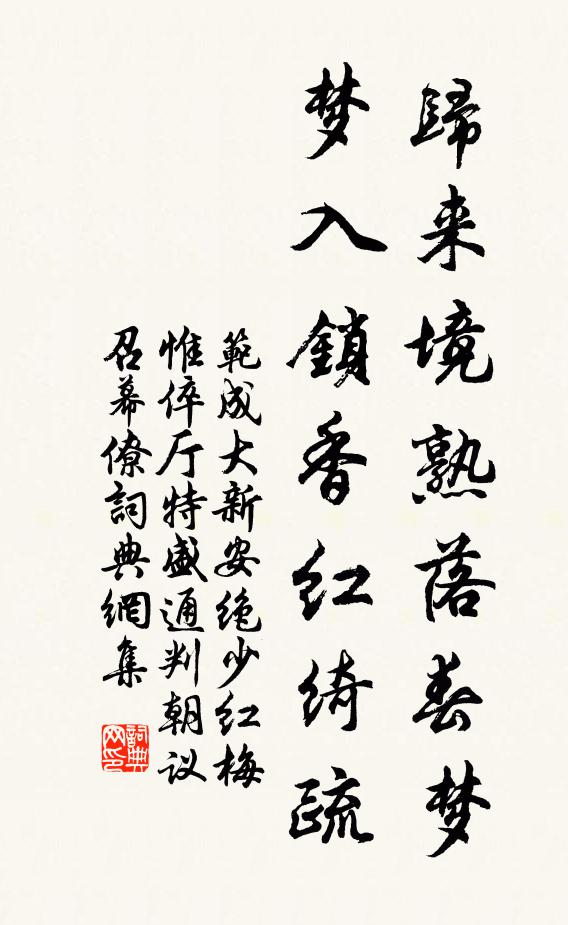 歸来境熟落春梦
梦入鎖香红绮疏
範成大新安绝少红梅
惟倅厅特盛通判朝议
召幕僚詞典網集
詞典网印